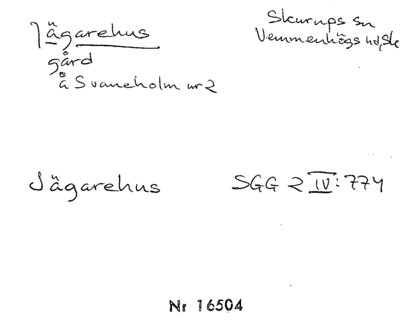 Jägarehus
gård
å Svaneholm nr 2
Skurups sn
Vemmenhögs hd, Sk
Jägarehus
SGG 2 IV: 774
Nr 16504